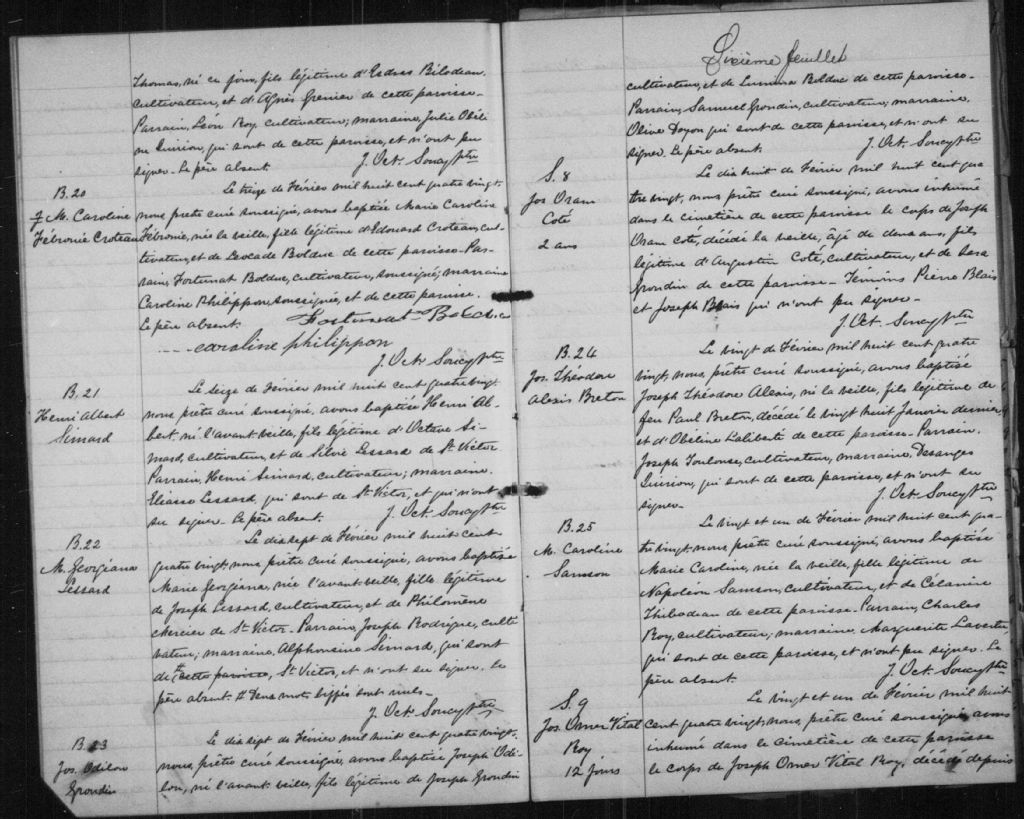 Thomas, né ce jour, fils légitime d'Esdras Bilodeau
cultivateur, et d'Agnès Grenier de cette paroisse-
Parrain, Léon Roy, cultivateur; marraine, Julie Obéli
ne Quirion, qui sont de cette paroisse, et n'ont pu
signer. Le père absent. J. Oct. Soucy Ptre
B.20
f M. Caroline
Fébronie Croteau
Le treize de Février mil huit cent quatre vingt,
nous prêtre curé soussigné, avons baptisé Marie Caroline
Fébronie, née la veille, fille légitime d'Edouard Croteau, cul-
tivateur, et de Léocade Bolduc de cette paroisse- Par-
rain, Fortunat Bolduc, cultivateur, soussigné; marraine
Caroline Philippon, soussignée, et de cette paroisse.
Le père absent. Fortunat Bolduc
caroline philippon
J. Oct. Soucy Ptre
B.21
Henri Albert
Simard
Le seize de Février mil huit cent quatre vingt
nous prêtre curé soussigné, avons baptisé Henri Al-
bert, né l'avant veille, fils légitime d'Octave Si-
mard, cultivateur, et de Silvie Lessard de St. Victor
Parrain, Henri Simard, cultivateur; marraine.
Lessard, qui sont de St. Victor, et qui n'ont
su signer. Le père absent. J. Oct. Soucy Ptre
B.22
M. Georgiana
Lessard
Le dix sept de Février mil huit cent
quatre vingt, nous prêtre curé soussigné, avons baptisée
Marie Georgiana, née l'avant veille, fille légitime
de Joseph Lessard, cultivateur, et de Philomène
Mercier de St. Victor- Parrain, Joseph Rodrigue, culti
vateur; marraine, Alphonsine Simard, qui sont
de cette paroisse, St. Victor, et n'ont su signer. Le
père absent. # Deux mots biffés sont nuls-
J. Oct. Soucy Ptre
B.23
Jos. Odilon
Grondin
Le dix sept de Février mil huit cent quatre vingt,
nous, prêtre curé soussigné, avons baptisé Joseph Odi-
lon, né l'avant veille, fils légitime de Joseph Grondin
Sixième feuillet
cultivateur, et de Lumina Bolduc de cette paroisse-
Parrain, Samuel Grondin, cultivateur; marraine,
Olive Doyon qui sont de cette paroisse, et n'ont su
signer. Le père absent. J. Oct. Soucy Ptre
S. 8
Jos Oram
Coté
2 ans
Le dix huit de Février mil huit cent qua
tre vingt, nous, prêtre curé soussigné, avons inhumé
dans le cimetière de cette paroisse le corps de Joseph
Oram Coté, décédé la veille, âgé de deux ans, fils
légitime d'Augustin Coté, cultivateur, et de
Grondin de cette paroisse- Témoins Pierre Blais
et Joseph Blais qui n'ont pu signer-
J. Oct. Soucy Ptre
B.24
Jos. Théodore
Alexis Breton
Le vingt de Février mil huit cent quatre
vingt, nous, prêtre curé soussigné, avons baptisé
Joseph Théodore Alexis, né la veille, fils légitime de
feu Paul Breton, décédé le vingt huit Janvier dernier,
et d'Obéline Laliberté de cette paroisse- Parrain,
Joseph Toulouse, cultivateur, marraine, Desanges
Quirion, qui sont de cette paroisse, et n'ont su
signer- J. Oct. Soucy Ptre
B.25
M. Caroline
Samson
Le vingt et un de Février mil huit cent qua-
tre vingt, nous prêtre curé soussigné, avons baptisé
Marie Caroline, née la veille, fille légitime de
Napoléon Samson, cultivateur, et de Célanire
Thibodeau de cette paroisse- Parrain, Charles
Roy, cultivateur; marraine, Marguerite
qui sont de cette paroisse, et n'ont pu signer. Le
père absent. J. Oct. Soucy Ptre
S. 9
Jos. Omer Vital
Roy
12 jours
Le vingt et un de Février mil huit
cent quatre vingt, nous, prêtre curé soussigné avons
inhumé dans le cimetière de cette paroisse
le corps de Joseph Omer Vital Roy, décédé depuis